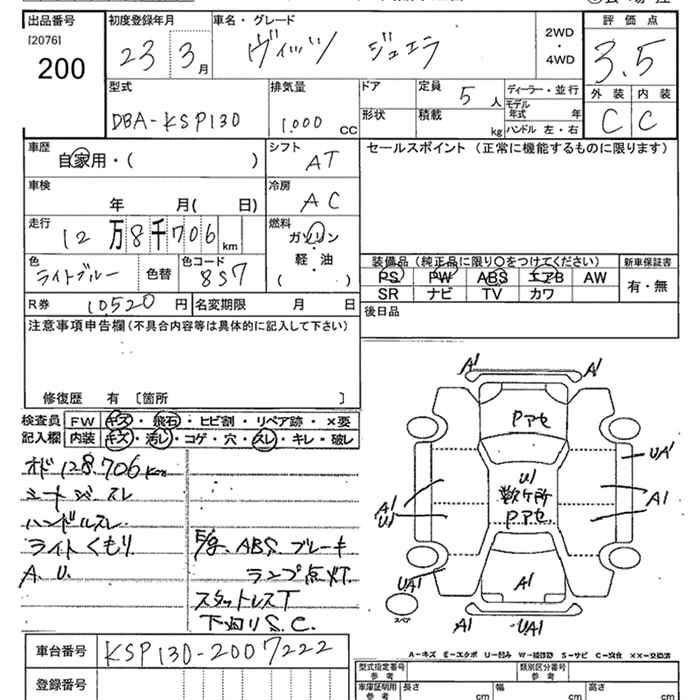 出品番号 初度登録年月 車名・グレード 評価点
[2076] 2WD
200 23 3月 ヴィッツ ジュエラ ・ 3.5
4WD
型式 排気量 ドア 定員 5人 ディーラー・並行 外装 内装
モデル年式 年
DBA-KSP130 1,000 CC 形状 積載 kg ハンドル 左・右 C C
車歴 シフト セールスポイント (正常に機能するものに限ります)
自家用・( ) AT
車検 冷房
年 月( 日) AC
走行 燃料
12万8千706km ガソリン
軽・油
( )
色 色替 色コード
ライトブルー 8S7
装備品(純正品に限り○をつけてください) 新車保証書
PS PW ABS エアB AW 有・無
SR ナビ TV カワ
R券 10520円 名変期限 月 日 後日品
注意事項申告欄(不具合内容等は具体的に記入して下さい)
修復歴 有 〔箇所 〕
検査員 FW キズ・飛石・ヒビ割・リペア跡・×要
記入欄 内装 キズ・汚レ・コゲ・穴・スレ・キレ・破レ
オド128,706km
シートジースレ
ハンドルスレ
ライトくもり
A.U.
E/g. ABS. ブレーキ
ランプ点灯.
スタットレスT
下回りS.C.
A1 A1
Pアセ
UA1
U1
数ヶ所
Pアセ.
A1
U1
A1
UA1
A1
スペア
A1 UA1
A-キズ E-エクボ U-凹み W-補修跡 S-サビ C-腐食 XX-交換済
車台番号 KSP130-2007222
登録番号
型式指定番号 参考 類別区分番号 参考
車庫証明用 参考 長さ cm 幅 cm 高さ cm